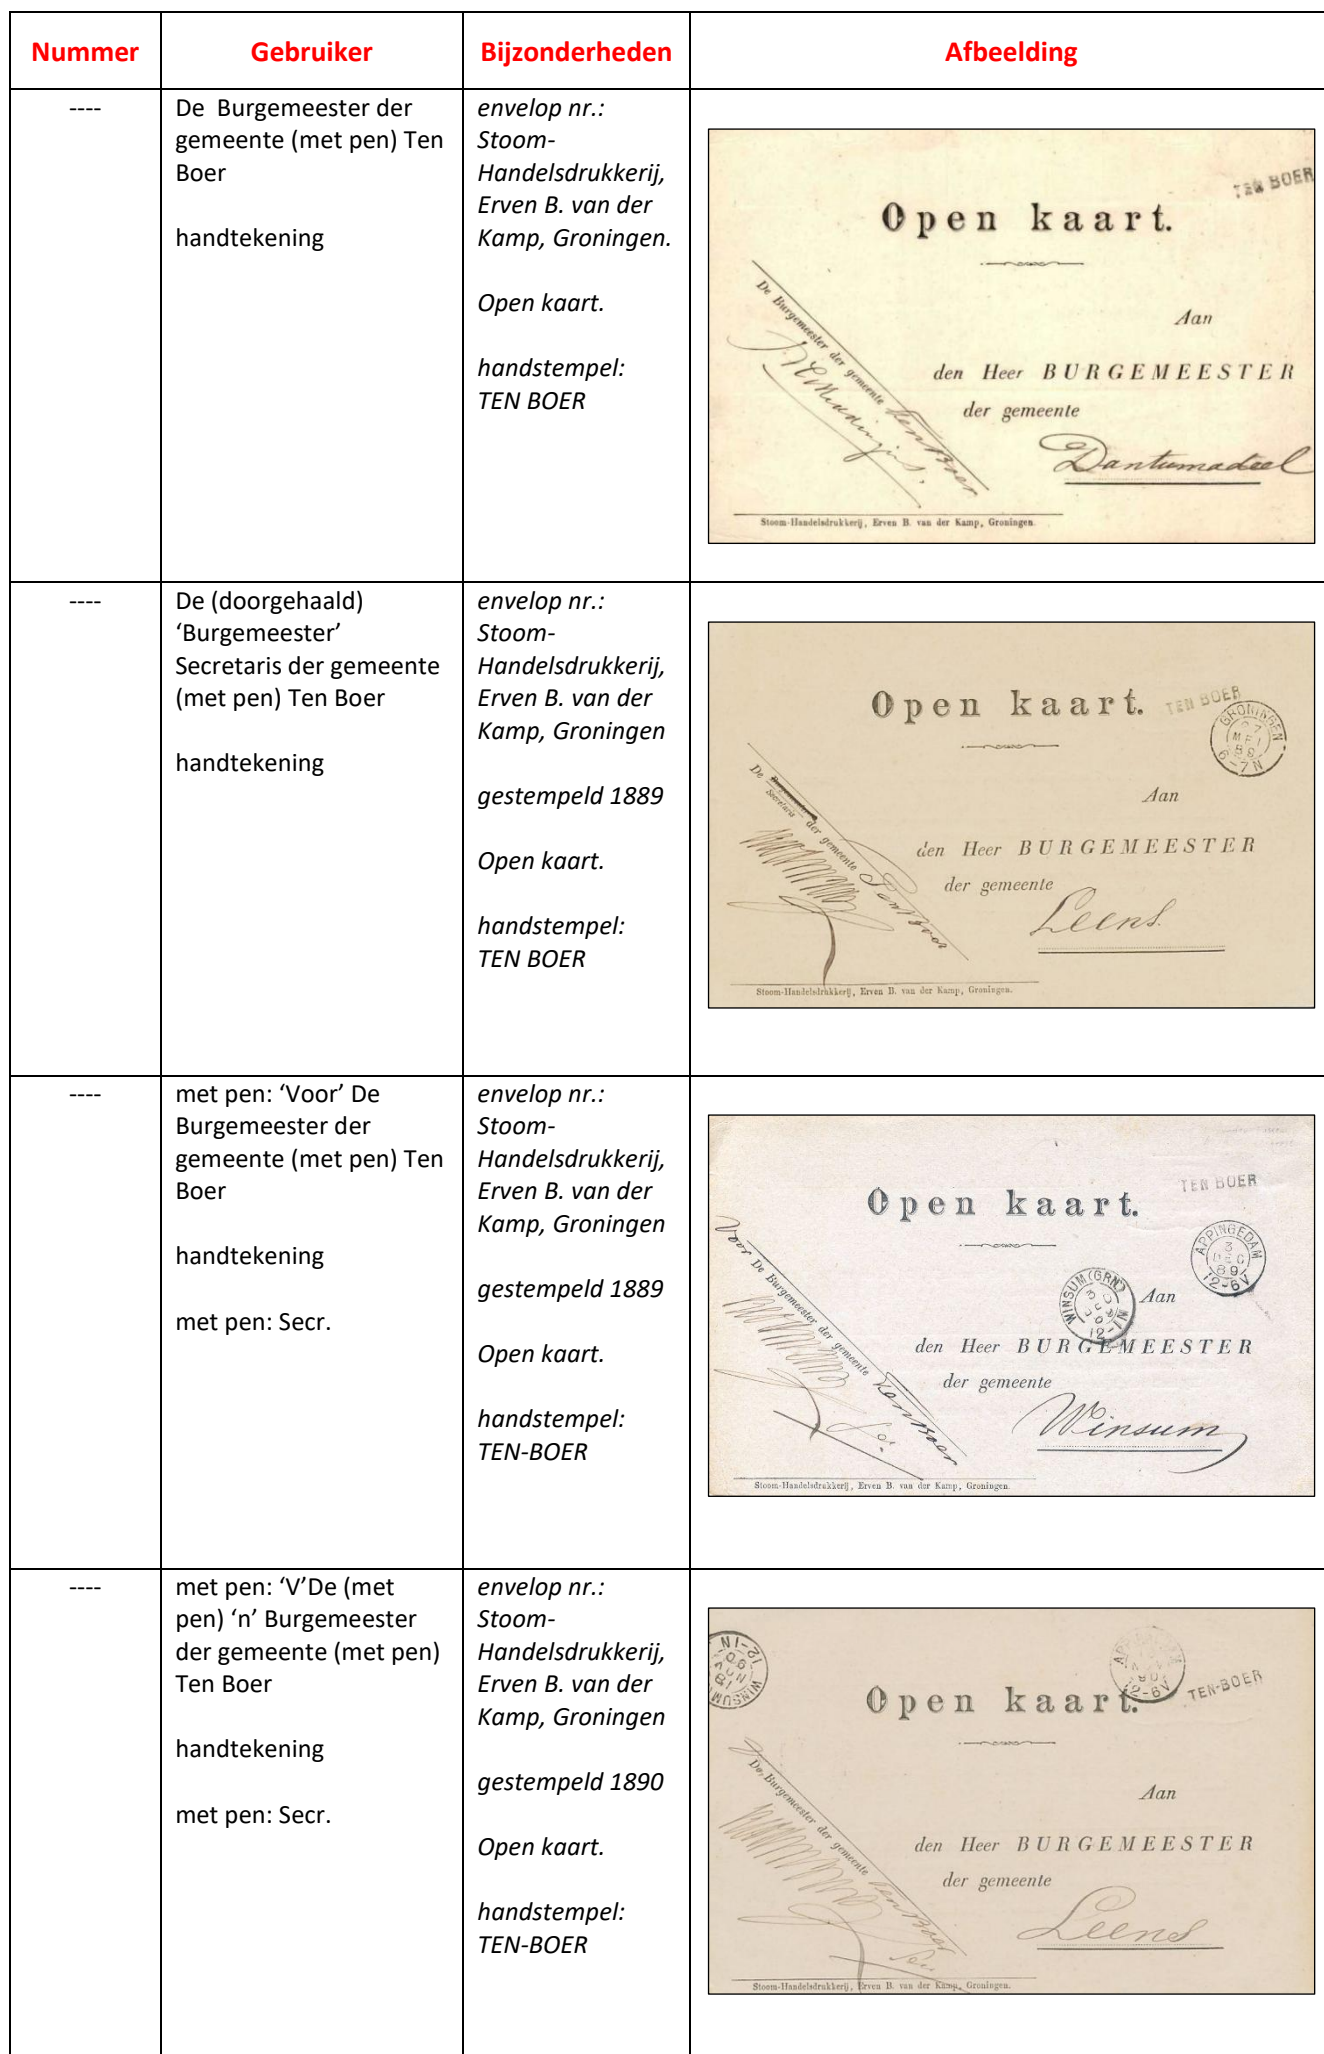 Nummer Gebruiker Bijzonderheden Afbeelding
----
De  Burgemeester der
gemeente (met pen) Ten
Boer
handtekening
envelop nr.:
Stoom-
Handelsdrukkerij,
Erven B. van der
Kamp, Groningen.
Open kaart.
handstempel:
TEN BOER
TEN BOER
Open kaart.
De Burgemeester der gemeente Ten Boer
Aan
den Heer BURGEMEESTER
der gemeente
Dantumadeel
Stoom-Handelsdrukkerij, Erven B. van der Kamp, Groningen.
----
De (doorgehaald)
‘Burgemeester’
Secretaris der gemeente
(met pen) Ten Boer
handtekening
envelop nr.:
Stoom-
Handelsdrukkerij,
Erven B. van der
Kamp, Groningen
gestempeld 1889
Open kaart.
handstempel:
TEN BOER
Open kaart.
TEN BOER
GRONINGEN
27
MEI
89
6-7N
De Burgemeester
Secretaris der gemeente Ten Boer
Aan
den Heer BURGEMEESTER
der gemeente
Leens.
Stoom-Handelsdrukkerij, Erven B. van der Kamp, Groningen.
----
met pen: ‘Voor’ De
Burgemeester der
gemeente (met pen) Ten
Boer
handtekening
met pen: Secr.
envelop nr.:
Stoom-
Handelsdrukkerij,
Erven B. van der
Kamp, Groningen
gestempeld 1889
Open kaart.
handstempel:
TEN-BOER
TEN BOER
Open kaart.
APPINGEDAM
3
DEC
89
12-6V
WINSUM (GRN)
12-1N
Voor De Burgemeester der gemeente Ten Boer
Aan
den Heer BURGEMEESTER
der gemeente
Winsum
Stoom-Handelsdrukkerij, Erven B. van der Kamp, Groningen.
----
met pen: ‘V’De (met
pen) ‘n’ Burgemeester
der gemeente (met pen)
Ten Boer
handtekening
met pen: Secr.
envelop nr.:
Stoom-
Handelsdrukkerij,
Erven B. van der
Kamp, Groningen
gestempeld 1890
Open kaart.
handstempel:
TEN-BOER
WINSUM
12-1N
90
2-6V
TEN-BOER
Open kaart.
De, Burgemeester der gemeente Ten Boer
Aan
den Heer BURGEMEESTER
der gemeente
Leens
Stoom-Handelsdrukkerij, Erven B. van der Kamp, Groningen.